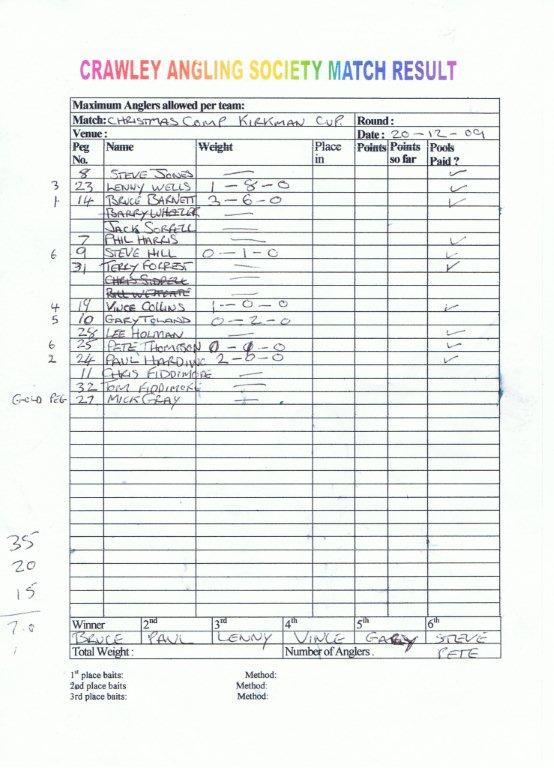 CRAWLEY ANGLING SOCIETY MATCH RESULT
Maximum Anglers allowed per team:
Match: CHRISTMAS COMP KIRKMAN CUP. Round :
Venue : Date : 20-12-09
Peg No. Name Weight Place in Points Points so far Pools Paid ?
8 STEVE JONES — ✓
3 23 LENNY WELLS 1-8-0 ✓
1 14 BRUCE BARNETT 3-6-0 ✓
BARRY WHEELER —
JACK SORRELL —
7 PHIL HARRIS — ✓
6 9 STEVE HILL 0-1-0 ✓
31 TERRY FORREST — ✓
CHRIS —
—
4 19 VINCE COLLINS 1-0-0 ✓
5 10 GARY TOLAND 0-2-0
28 LEE HOLMAN — ✓
6 25 PETE THOMPSON 0-1-0 ✓
2 24 PAUL HARDING 2-6-0 ✓
11 CHRIS FIDDIMORE —
32 TOM FIDDIMORE —
GOLD PEG 27 MICK GRAY —
35
20
15
70
Winner 2nd 3rd 4th 5th 6th
BRUCE PAUL LENNY VINCE GARY STEVE
Total Weight : Number of Anglers . PETE
1st place baits: Method:
2nd place baits Method:
3rd place baits: Method: